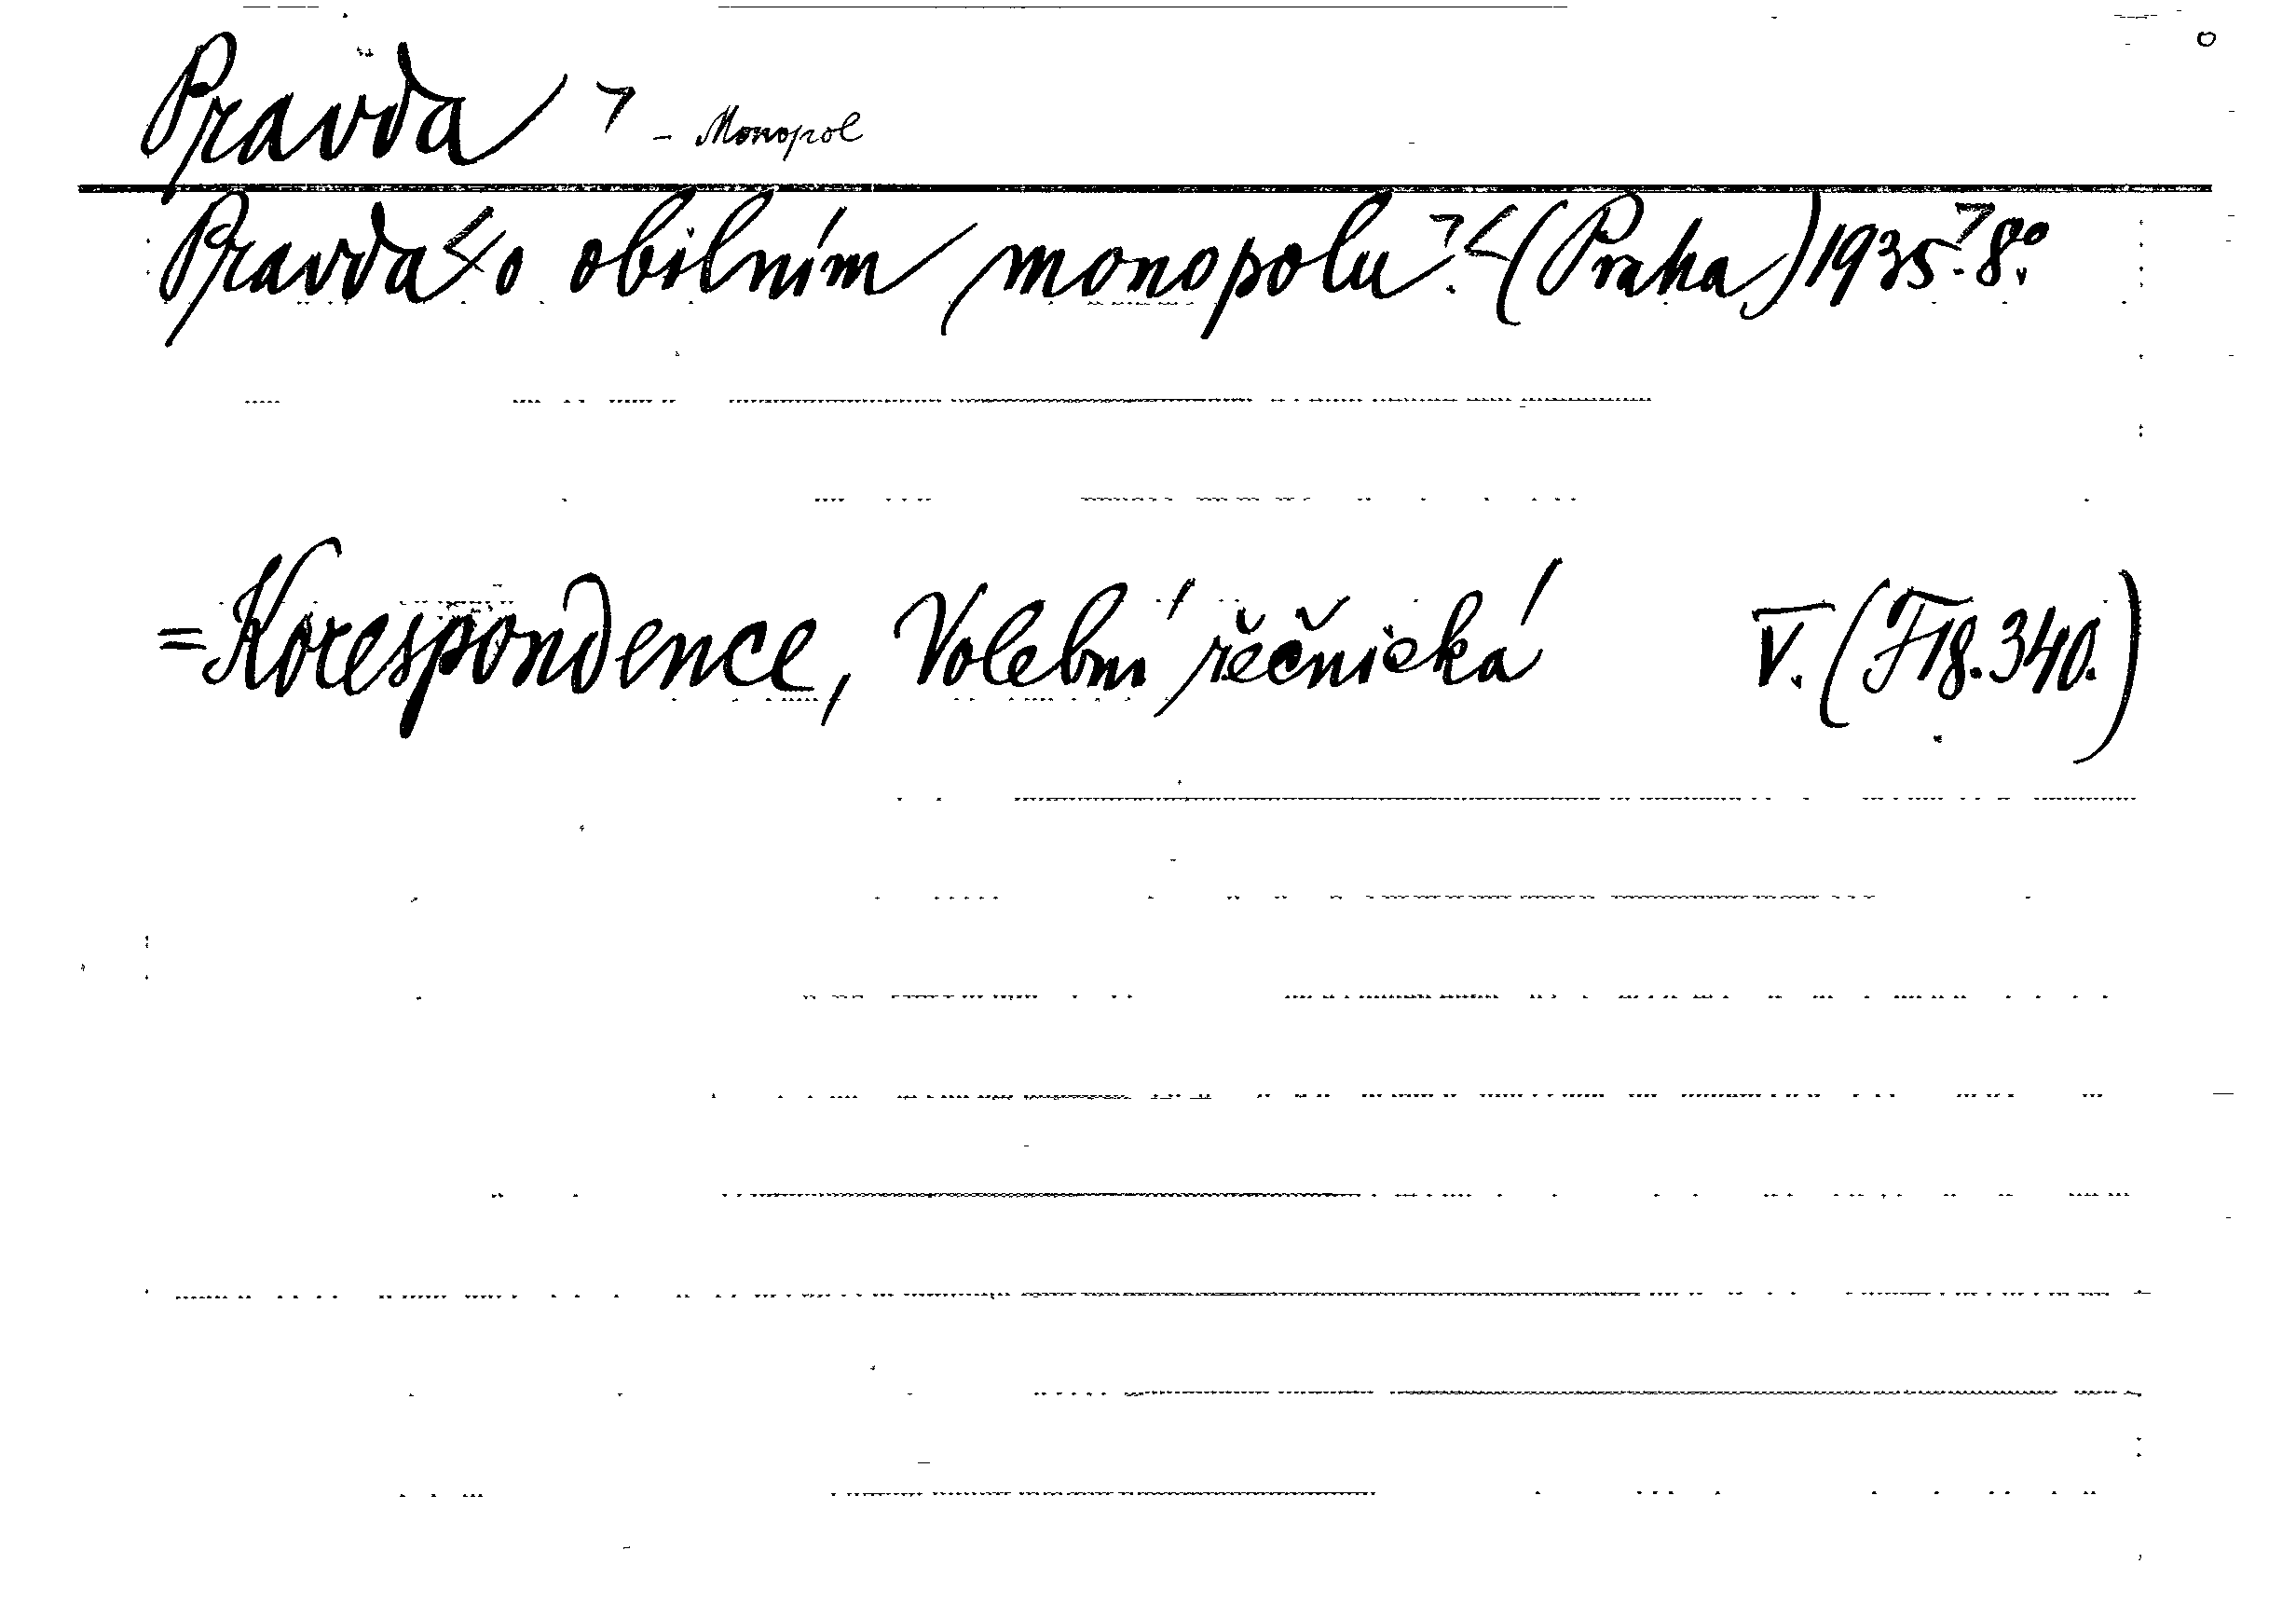 Pravda > - Monopol
Pravda < o obilním monopolu.> < (Praha) 1935.> 8°.
= Korespondence, Volební řečnická V. (F 18.340.)